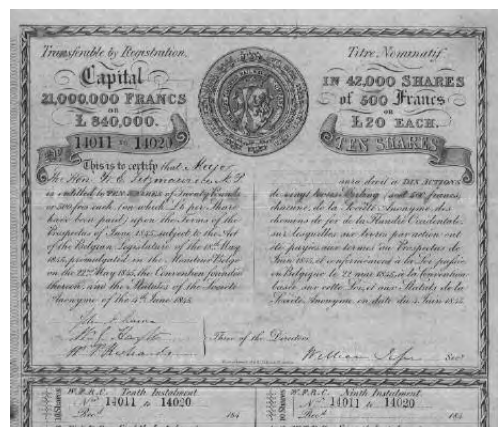 Transferable by Registration.
Capital
21,000,000 FRANCS
OR
£ 840,000.
14011 to 14020
Titre Nominatif
IN 42,000 SHARES
of 500 Francs
OR
£20 EACH.
TEN SHARES
This is to certify that Major
The Hon. W. C. Fitzmaurice M.P.
is entitled to TEN SHARES of Twenty Pounds
or 500 frcs each (on which £ per Share
have been paid) upon the terms of the
Prospectus of June 1845 subject to the Act
of the Belgian Legislature of the 18th May
1845, promulgated in the Moniteur Belge
on the 22nd May 1845, the Convention founded
thereon and the Statutes of the Société
Anonyme of the 4th June 1845
aura droit à DIX ACTIONS
de vingt livres Sterling (soit 500 francs)
chacune, de la Société Anonyme des
chemins de fer de la Flandre Occidentale,
sur lesquelles livres par action ont
été payées aux termes du Prospectus de
Juin 1845, et conformément à la Loi publiée
en Belgique le 22 mai 1845, à la Convention
basée sur cette Loi, et aux Statuts de la
Société Anonyme en date du 4 Juin 1845
Three of the Directors
William Secy
W.F.R.C. Tenth Instalment.
10 Shares
Nos 14011 to 14020
Recd 184
W.F.R.C. Ninth Instalment.
10 Shares
Nos 14011 to 14020
Recd 184